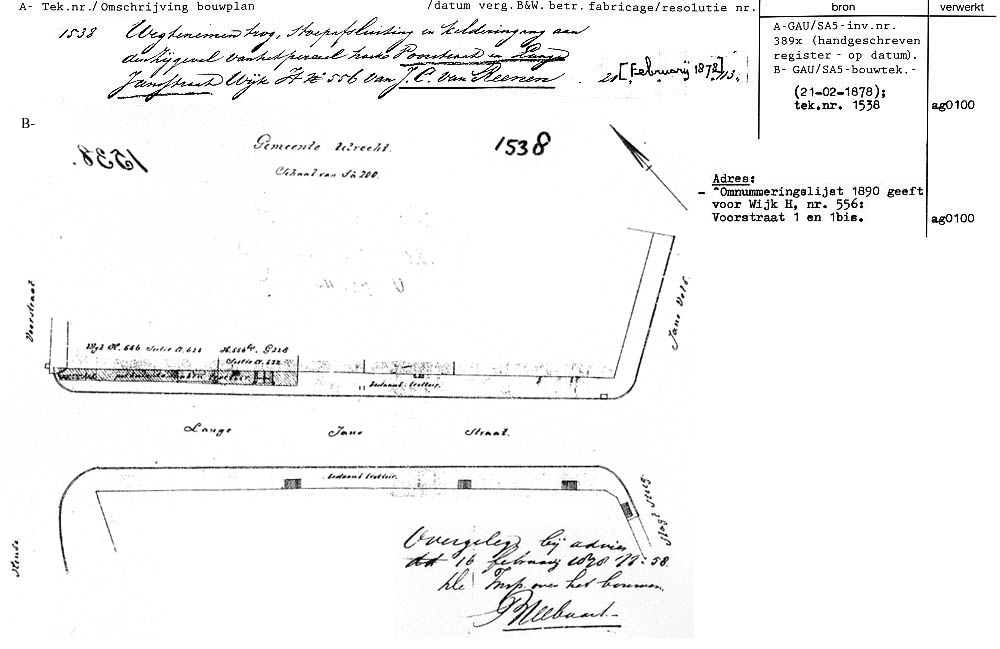 A- Tek.nr./Omschrijving bouwplan /datum verg.B&W.betr.fabricage/resolutie nr. bron verwerkt
1538 Wegtenemen trog, stoepafsluiting en kelderingang aan
den zijgevel van het perceel hoeks Voorstraat en Lange
Jansstraat Wijk H № 556 van J. C. van Reenen. 21 [Februarij 1878] /13.
A-GAU/SA5-inv.nr.
389x (handgeschreven
register - op datum).
B- GAU/SA5-bouwtek.-
(21-02-1878);
tek.nr. 1538 ag0100
B-
1538.
Gemeente Utrecht.
Schaal van 1 à 200.
1538
Adres:
- "Omnummeringslijst 1890 geeft
voor Wijk H, nr. 556:
Voorstraat 1 en 1bis. ag0100
Voorstraat
Jans Veld.
Wijk H. 556 Sectie A. 621 H. 556
Sectie A. 622
bestaand trottoir.
Lange Jans Straat.
bestaand trottoir.
Overgelegd bij advies
dd 16 februarij 1878 Nº 58.
De Insp. over het bouwen.